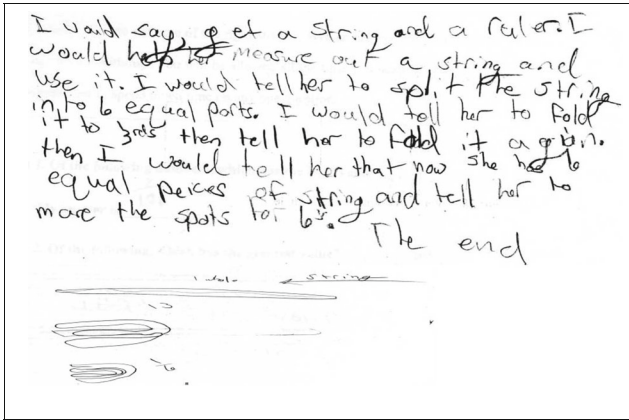 I would say, get a string and a ruler. I
would help her measure out a string and
use it. I would tell her to split the string
into 6 equal parts. I would tell her to fold
it to 3rds then tell her to fold it agian.
then I would tell her that now she has 6
equal peices of string and tell her to
marc the spots for 6s.
The end
1 whole string
1/3
1/6